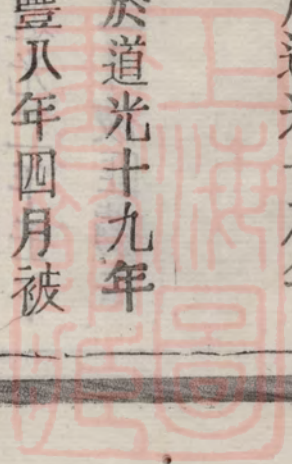 於道光十九年
豐八年四月被
上海圖
書館藏